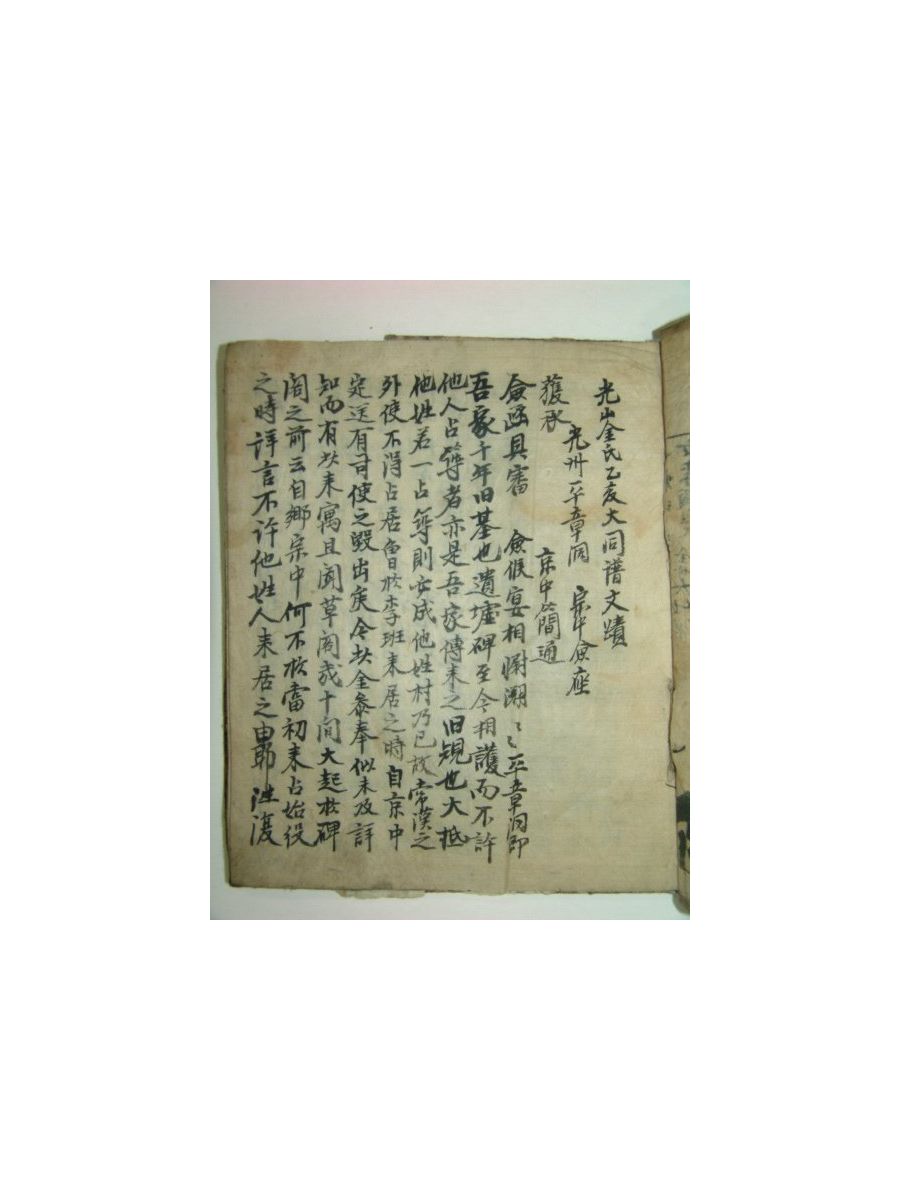 光山金氏乙亥大同譜文蹟
光州平章洞 宗中僉座
京中簡通
護承
僉函具審 僉候宴相慰溯〻平章洞即
吾家千年旧基也遺墟碑至今相護而不許
他人占築者亦是吾家傳来之旧䂓也大抵
他姓若一占築則亦成他姓村乃已故常漢之
外使不得占居曾日於李班来居之時自京中
定送有司使之毀出矣今於金叅奉似未及詳
知而有此来寓且聞草閣幾十間大起於碑
閣之前云自鄉宗中何不於當初来占始役
之時詳言不許他姓人来居之由耶